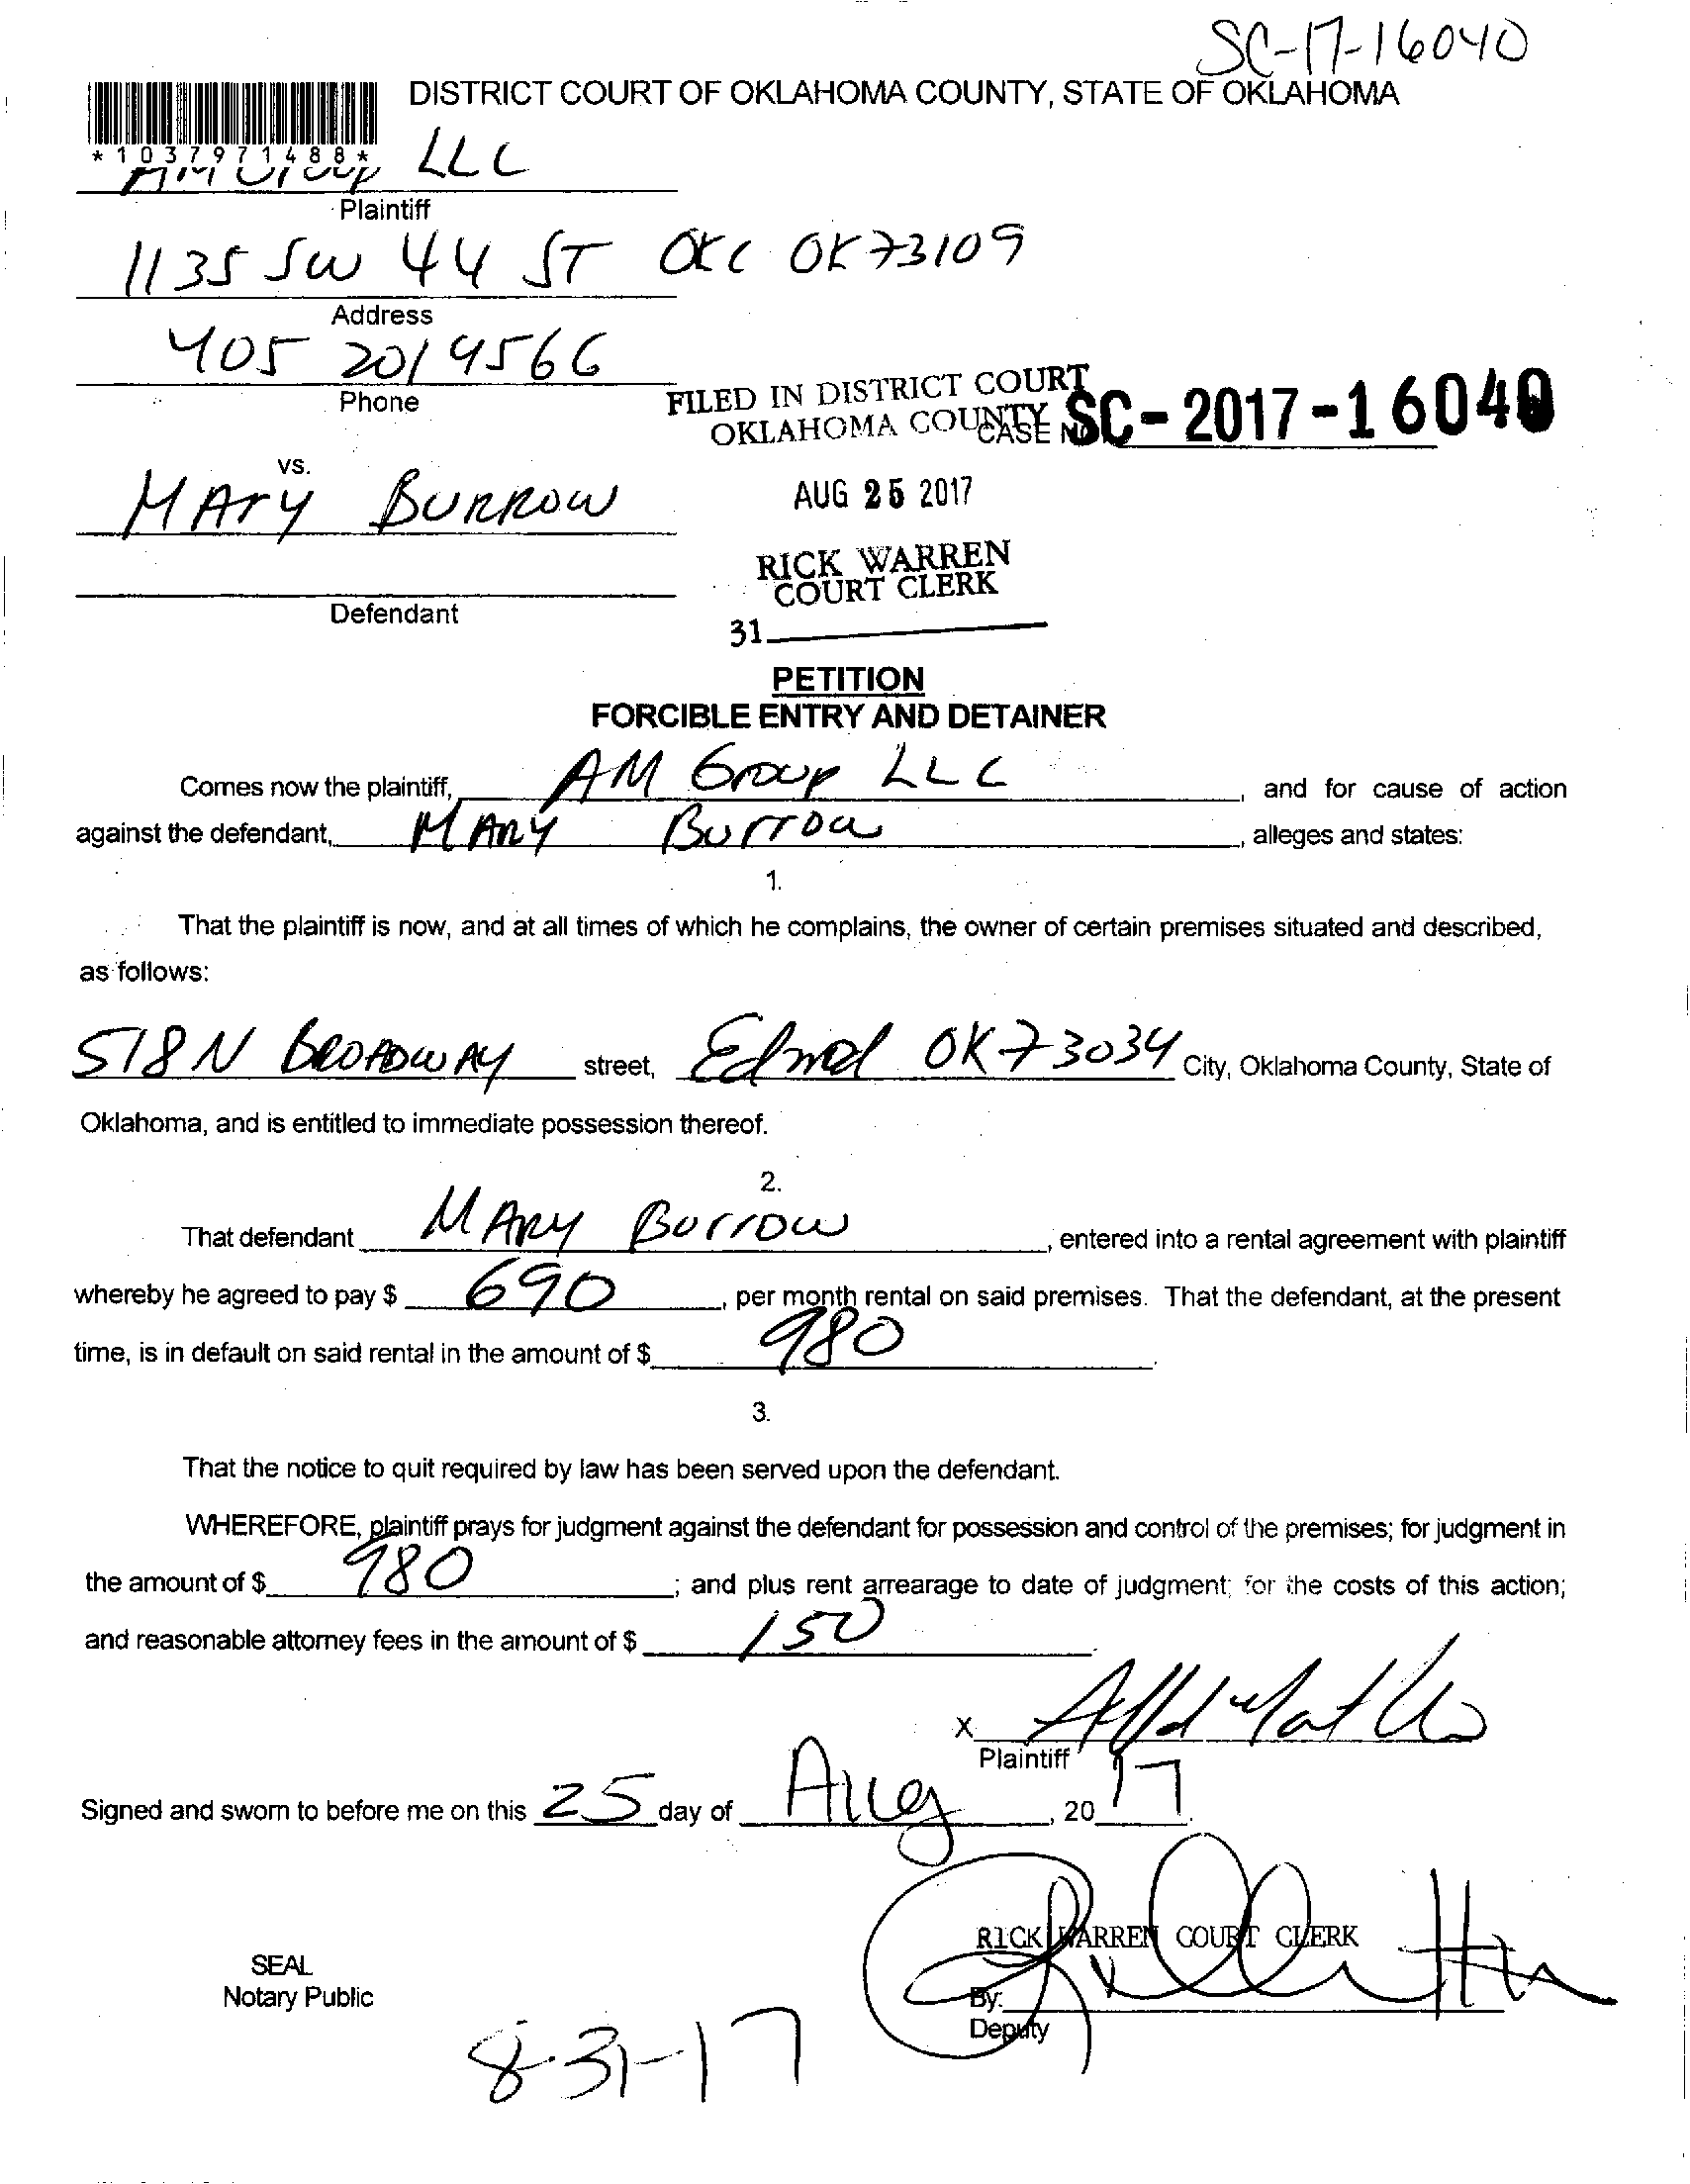 SC-17-16040
DISTRICT COURT OF OKLAHOMA COUNTY, STATE OF OKLAHOMA
*1037971488*
AM Group LLC
Plaintiff
1135 SW 44 ST OKC OK 73109
Address
405 201 9566
Phone
FILED IN DISTRICT COURT
OKLAHOMA COUNTY
CASE NO. SC-2017-16040
vs.
MARY BURROW
AUG 25 2017
RICK WARREN
COURT CLERK
Defendant
31
PETITION
FORCIBLE ENTRY AND DETAINER
Comes now the plaintiff, AM Group LLC, and for cause of action
against the defendant, MARY Burrow, alleges and states:
1.
That the plaintiff is now, and at all times of which he complains, the owner of certain premises situated and described,
as follows:
518 N BROADWAY street, Edmond OK 73034 City, Oklahoma County, State of
Oklahoma, and is entitled to immediate possession thereof.
2.
That defendant MARY Burrow, entered into a rental agreement with plaintiff
whereby he agreed to pay $ 690, per month rental on said premises. That the defendant, at the present
time, is in default on said rental in the amount of $ 980.
3.
That the notice to quit required by law has been served upon the defendant.
WHEREFORE, plaintiff prays for judgment against the defendant for possession and control of the premises; for judgment in
the amount of $ 980; and plus rent arrearage to date of judgment; for the costs of this action;
and reasonable attorney fees in the amount of $ 150.
X
Plaintiff
Signed and sworn to before me on this 25 day of Aug, 20 17.
RICK WARREN COURT CLERK
SEAL
Notary Public
By:
Deputy
8-31-17